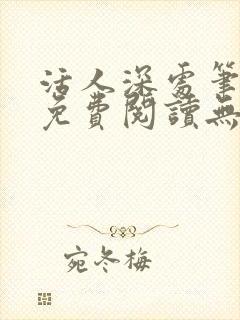 活人深處筆
免費閱讀無
宛冬梅